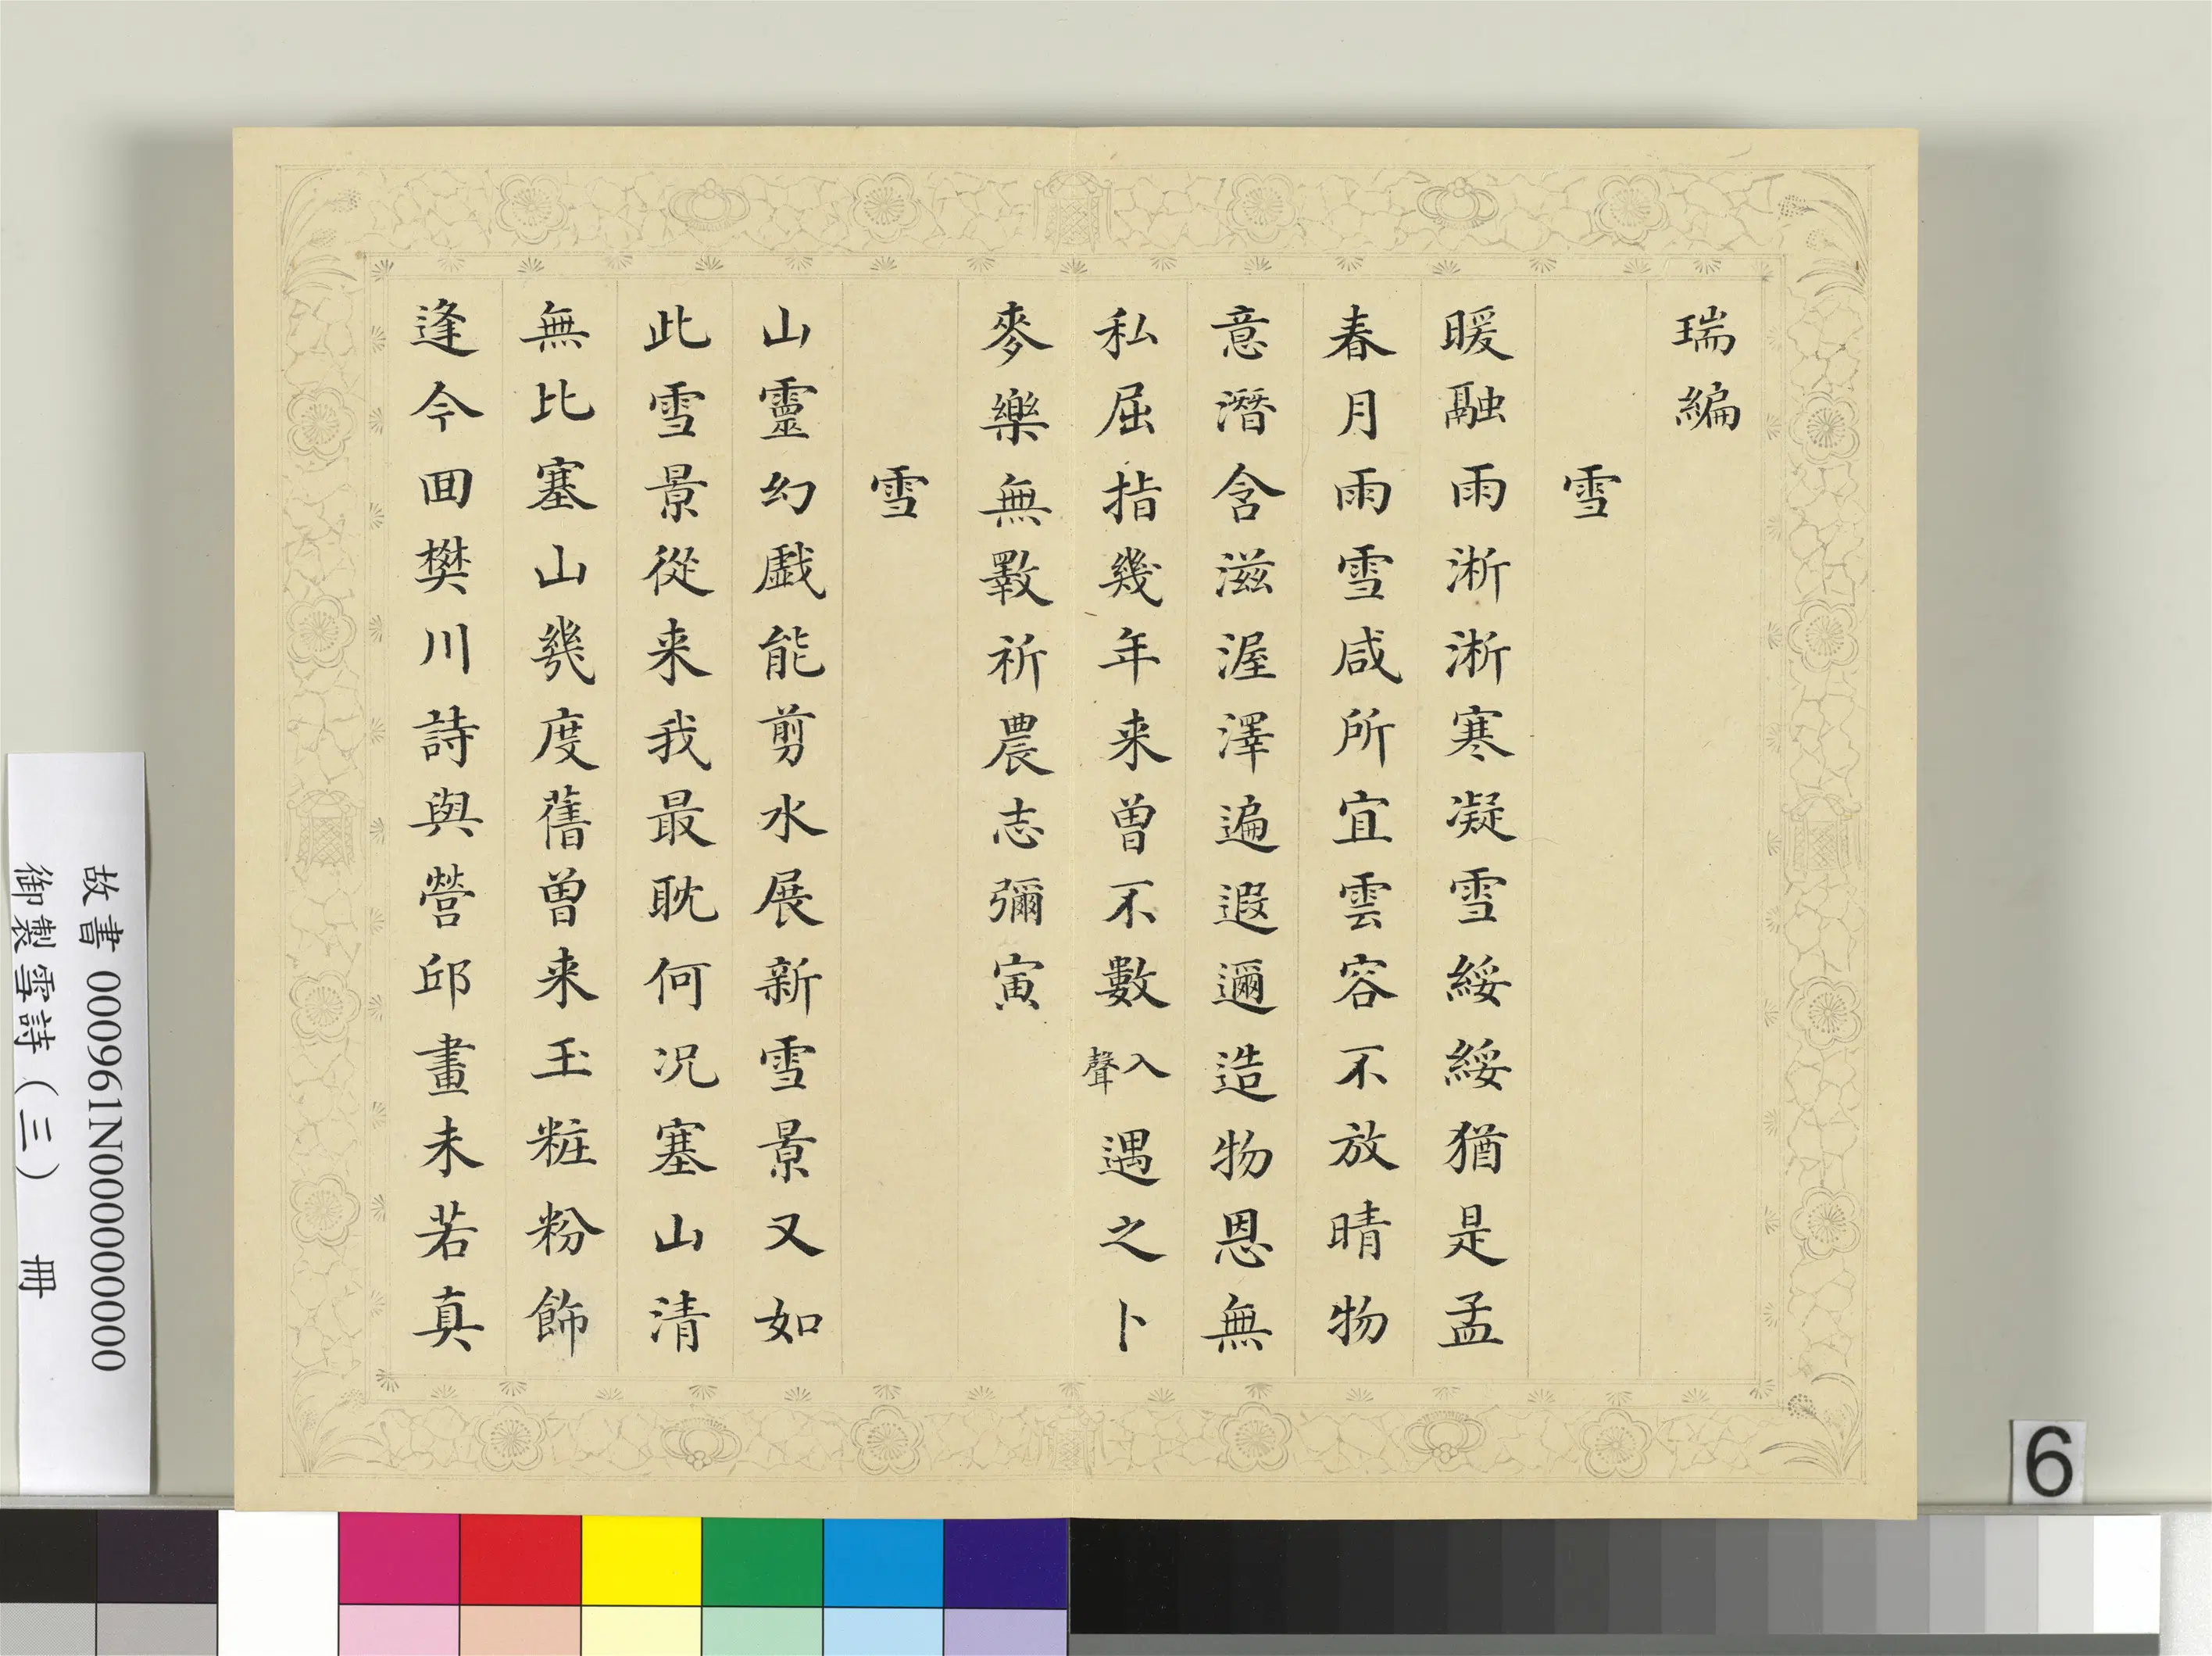 瑞編
雪
暖融雨淅淅寒凝雪綏綏猶是孟
春月雨雪咸所宜雲容不放晴物
意潛含滋渥澤遍遐邇造物恩無
私屈指幾年来曾不數入聲遇之卜
麥樂無斁祈農志彌寅
雪
山靈幻戱能剪水展新雪景又如
此雪景從来我最耽何况塞山清
無比塞山幾度舊曾来玉粧粉飾
逢今囬樊川詩與營邱畫未若真
故書 000961N000000000
御製雪詩（三） 冊
6